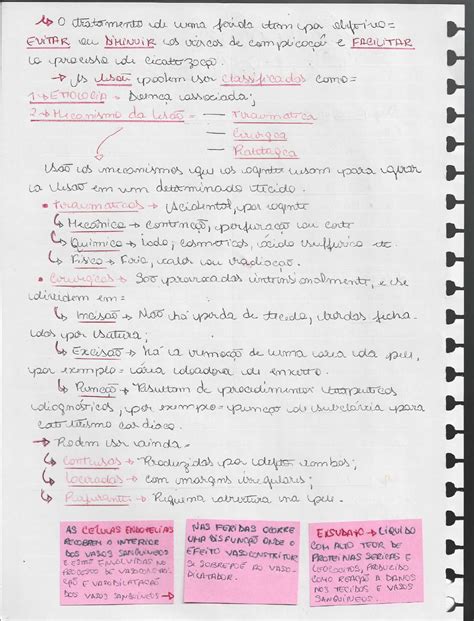 ↳ O tratamento de uma ferida tem por objetivo =
EVITAR ou DIMINUIR os riscos de complicação e FACILITAR
o processo de cicatrização.
→ As lesões podem ser classificadas como =
1- ETIOLOGIA → Doença associada;
2- Mecanismo da lesão = — Traumática
— Cirúrgica
— Patológica
São os mecanismos que os agentes usam para gerar
a lesão em um determinado tecido.
• Traumáticos → Acidental, por agente
↳ Mecânico → contenção, perfuração ou corte
↳ Químico → Iodo, cosméticos, ácido sulfúrico etc
↳ Físico → Frio, calor ou radiação.
• Cirúrgicas → São provocadas intensionalmente, e se
dividem em =
↳ Incisão → Não há perda de tecido, bordas fecha-
das por sutura;
↳ Excisão → há a remoção de uma área da pele,
por exemplo = área doadora de enxerto.
↳ Punção → Resultam de procedimentos terapeuticos
diagnósticos, por exemplo = punção de subclávia para
cateterismo cardíaco.
→ Podem ser ainda =
↳ Contusas → Produzidas por objetos rombos;
↳ Laceradas → com margens irregulares;
↳ Perfurantes → Pequena abertura na pele.
AS CÉLULAS ENDOTELIAIS
RECOBREM O INTERIOR
DOS VASOS SANGUÍNEOS
E ESTÃO ENVOLVIDAS NO
PROCESSO DE VASOCONSTRI-
ÇÃO E VASODILATAÇÃO
DOS VASOS SANGUÍNEOS →
NAS FERIDAS OCORRE
UMA DISFUNÇÃO ONDE O
EFEITO VASOCONSTRITOR
SE SOBREPÕE AO VASO-
DILATADOR.
EXSUDATO → LÍQUIDO
COM ALTO TEOR DE
PROTEÍNAS SÉRICAS E
LEUCÓCITOS, PRODUZIDO
COMO REAÇÃO A DANOS
NOS TECIDOS E VASOS
SANGUÍNEOS.